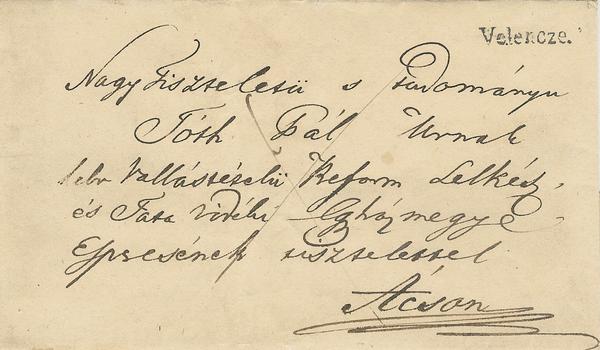 Velencze.
Nagy Tiszteletü s tudományu
Tóth Pál Urnak
helv Vallástételü Reform Lelkész,
és Tata vidéki Egyházmegye
Esperesének tisztelettel
Ácson